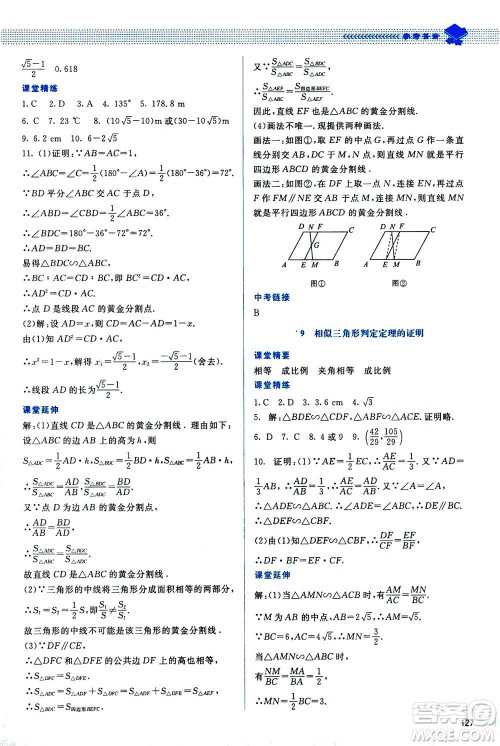 参考答案
(√5-1)/2 0.618
课堂精练
1. C 2. D 3. A 4. 135° 5. 178.8
6. C 7. 23 ℃ 8. (10√5-10) cm
9. 6.2 cm 10. 6-2√5
11. (1)证明:∵AB=AC=1,
∴∠ABC=∠C=1/2(180°-∠A)=1/2(180°-36°)=72°.
∵BD 平分∠ABC 交 AC 于点 D,
∴∠ABD=∠CBD=1/2∠ABC=36°.
∴∠BDC=180°-36°-72°=72°.
∴DA=DB,BD=BC.
∴AD=BD=BC.
易得△BDC∽△ABC,
∴BC∶AC=CD∶BC.
∴BC²=CD·AC.
∴AD²=CD·AC.
∴点 D 是线段 AC 的黄金分割点.
(2)解:设 AD=x,则 CD=AC-AD=1-x.
∵AD²=CD·AC,
∴x²=1-x.解得 x=(√5-1)/2,x=(-√5-1)/2(舍去).
∴线段 AD 的长为(√5-1)/2.
课堂延伸
解:(1)直线 CD 是△ABC 的黄金分割线.理由如下:
设△ABC 的边 AB 上的高为 h.
S△ADC=1/2AD·h,S△BDC=1/2BD·h,S△ABC=1/2AB·h,
∴S△ADC/S△ABC=AD/AB,S△BDC/S△ADC=BD/AD.
又∵点 D 为边 AB 的黄金分割点,
∴AD/AB=BD/AD.
∴S△ADC/S△ABC=S△BDC/S△ADC.
故直线 CD 是△ABC 的黄金分割线.
(2)∵三角形的中线将三角形分成面积相等的两部分,
∴S₁=S₂=1/2S,即S₁/S≠S₂/S₁.
故三角形的中线不可能是该三角形的黄金分割线.
(3)∵DF∥CE,
∴△DFC 和△DFE 的公共边 DF 上的高也相等.
∴S△DFC=S△DFE.
∴S△ADC=S△ADF+S△DFC=S△ADF+S△DFE=S△AEF,
S△BDC=S四边形BEFC.
又∵S△ADC/S△ABC=S△BDC/S△ADC,
∴S△AEF/S△ABC=S四边形BEFC/S△AEF.
因此,直线 EF 也是△ABC 的黄金分割线.
(4)画法不唯一.现提供两种画法:
画法一:如图①,取 EF 的中点 G,再过点 G 作一条直线分别交 AB,DC 于 M,N 点,则直线 MN 就是平行四边形 ABCD 的黄金分割线.
画法二:如图②,在 DF 上取一点 N,连接 EN,再过点 F 作 FM∥NE 交 AB 于点 M,连接 MN,则直线 MN 就是平行四边形 ABCD 的黄金分割线.
D N F C
G
A E M B
图①
D N F C
A M E B
图②
中考链接
B
*9 相似三角形判定定理的证明
课堂精要
相等 成比例 夹角相等 成比例
课堂精练
1. C 2. D 3. 3.6 cm 4. √3
5. 解:△ADE∽△ABC.证明略.
6. D 7. D 8. 4 或 9 9. (42/29, 105/29)
10. 证明:(1)∵AE/AC=1/3,AD/AB=1/3,∴AE/AC=AD/AB=1/3.又∵∠A=∠A,
∴△ADE∽△ABC.∴∠ADE=∠ABC.
又∵∠ADE=∠CBF,
∴△DEF∽△CBF.
(2)由(1)知△DEF∽△CBF,∴DF/CF=EF/BF,
∴DF·BF=EF·CF.
课堂延伸
解:(1)当△AMN∽△ABC 时,有AM/AB=MN/BC.
∵M 为 AB 的中点,AB=2√5,∴AM=√5.
∵BC=6,∴MN=3.
当△AMN∽△ACB 时,
有AM/AC=MN/BC.
127